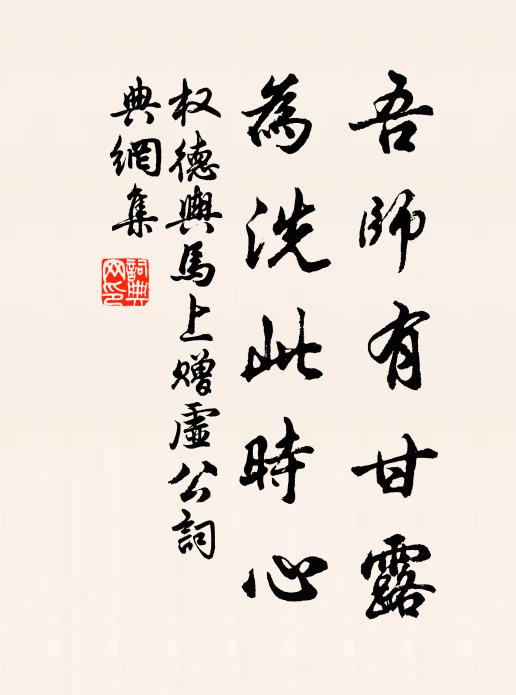 吾師有甘露
為洗此時心
权德輿馬上贈虛公詞
典網集
詞典
网印